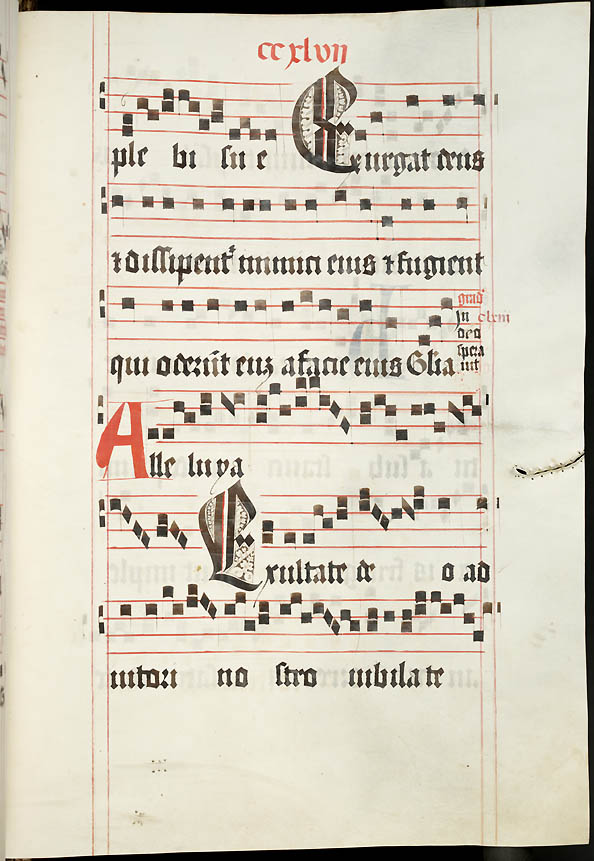 ccxlvii
ple bi su e Exurgat deus
⁊ dissipent᷑ inimici eius ⁊ fugient
qui oderūt euꝫ a facie eius Glīa
grad̄
In clxiii
deo
spera
uit
Alle luya
Exultate de o ad
iutori no stro iubilate